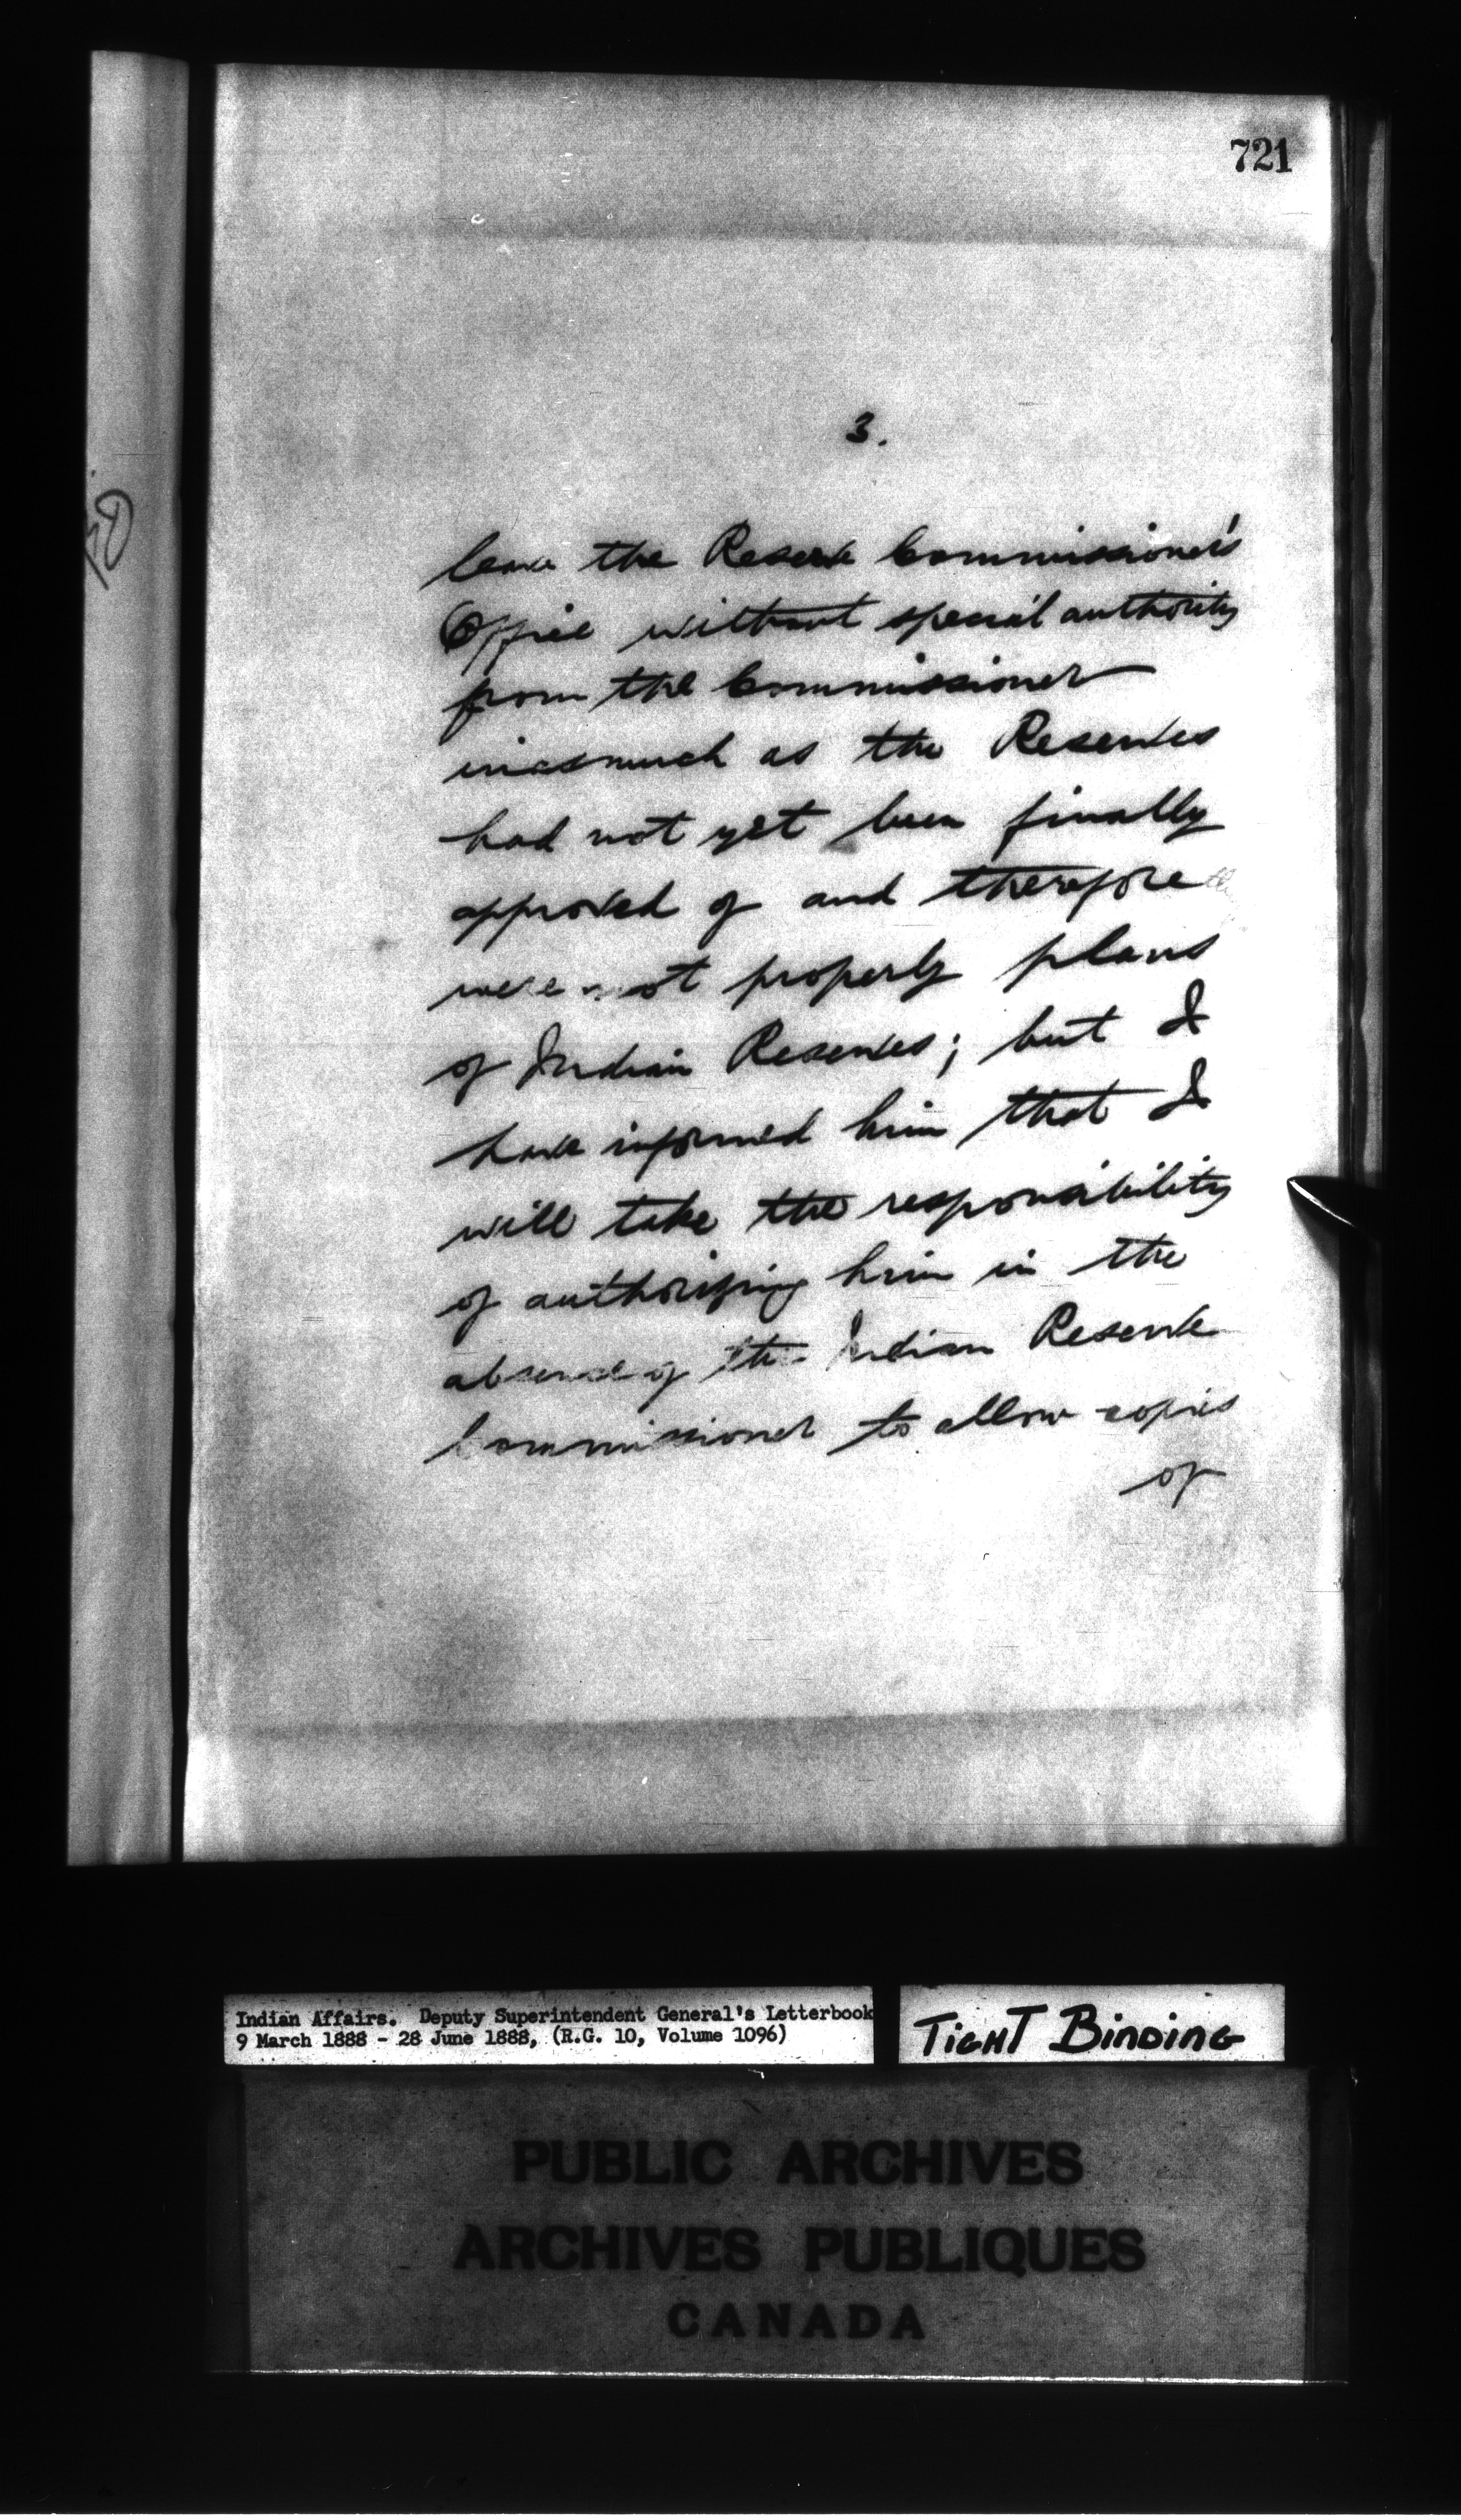 721
3.
leave the Reserve Commissioner's
Office without special authority
from the Commissioner
inasmuch as the Reserves
had not yet been finally
approved of and therefore the
were not properly plans
of Indian Reserves; but I
have informed him that I
will take the responsibility
of authorizing him in the
absence of the Indian Reserve
Commissioner to allow copies
of
Indian Affairs. Deputy Superintendent General's Letterbook
9 March 1888 - 28 June 1888, (R.G. 10, Volume 1096)
TIGHT BINDING
PUBLIC ARCHIVES
ARCHIVES PUBLIQUES
CANADA